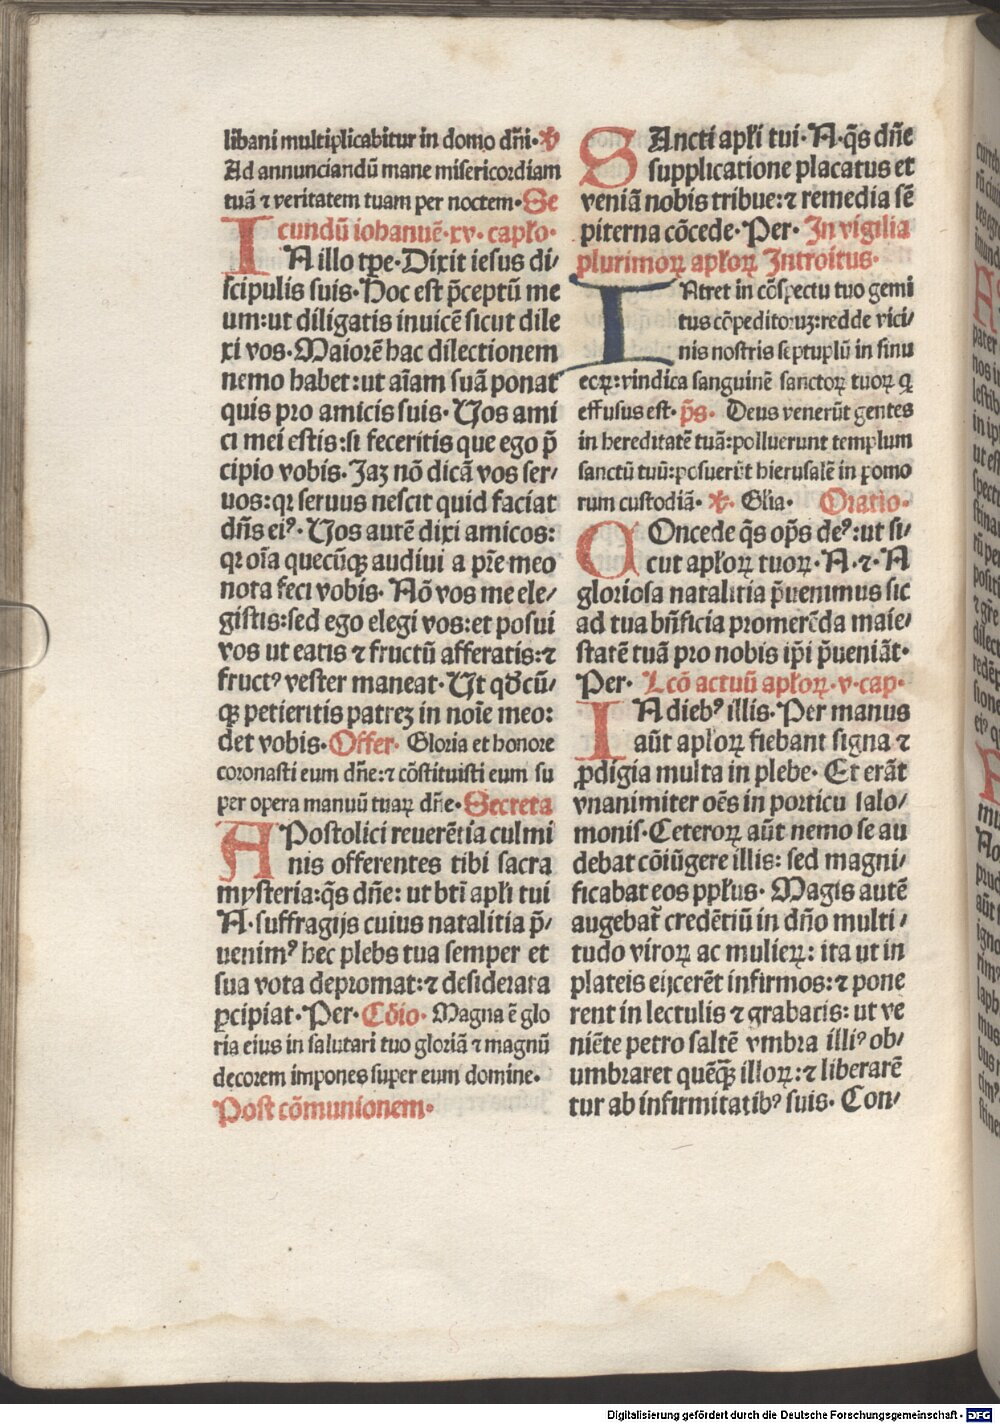 libani multiplicabitur in domo dñi· ℣
Ad annunciandũ mane misericordiam
tuã ⁊ veritatem tuam per noctem· Se
cundũ iohannẽ·xv·capło·
IN illo tp̃e·Dixit iesus di/
scipulis suis·Hoc est p̃ceptũ me
um:ut diligatis inuicẽ sicut dile
xi vos·Maiorẽ hac dilectionem
nemo habet:ut aĩam suã ponat
quis pro amicis suis·Vos ami
ci mei estis:si feceritis que ego p̃
cipio vobis·Jaz nõ dicã vos ser/
uos:qꝛ seruus nescit quid faciat
dñs eiꝰ·Vos autẽ dixi amicos:
qꝛ oĩa quecũqꝫ audiui a pr̃e meo
nota feci vobis·Nõ vos me ele/
gistis:sed ego elegi vos:et posui
vos ut eatis ⁊ fructũ afferatis:⁊
fructꝰ vester maneat·Ut qđcũ/
qꝫ petieritis patreʒ in noĩe meo:
det vobis·Offer· Gloria et honore
coronasti eum dñe:⁊ cõstituisti eum su
per opera manuũ tuaꝝ dñe·Secreta
APostolici reuerẽtia culmi
nis offerentes tibi sacra
mysteria:q̃s dñe: ut bt̃i apłi tui
N·suffragijs cuius natalitia p̃/
uenimꝰ hec plebs tua semper et
sua vota depromat:⁊ desiderata
ꝑcipiat·Per·Cõio· Magna ẽ glo
ria eius in salutari tuo gloriã ⁊ magnũ
decorem impones super eum domine·
Post cõmunionem·
SAncti apłi tui·N·q̃s dñe
supplicatione placatus et
veniã nobis tribue:⁊ remedia sẽ
piterna cõcede·Per·In vigilia
plurimoꝝ apłoꝝ Introitus·
INtret in cõspectu tuo gemi
tus cõpeditoꝝ:redde vici/
nis nostris septuplũ in sinu
eoꝝ:vindica sanguinẽ sanctoꝝ tuoꝝ q̃
effusus est· p̃s· Deus venerũt gentes
in hereditatẽ tuã:polluerunt templum
sanctũ tuũ:posuerũt hierusalẽ in pomo
rum custodiã· ℣· Głia· Oratio·
COncede q̃s op̃s deꝰ:ut si/
cut apłoꝝ tuoꝝ·N·⁊·N
gloriosa natalitia p̃uenimus sic
ad tua bñficia promerẽda maie/
statẽ tuã pro nobis ip̃i p̃ueniãt·
Per· Lcõ actuũ apłoꝝ·v·cap·
IN diebꝰ illis·Per manus
aũt apłoꝝ fiebant signa ⁊
ꝓdigia multa in plebe·Et erãt
vnanimiter oẽs in porticu salo/
monis·Ceteroꝝ aũt nemo se au
debat cõiũgere illis: sed magni/
ficabat eos ppłus·Magis autẽ
augebat᷑ credẽtiũ in dño multi/
tudo viroꝝ ac mulieꝝ: ita ut in
plateis eijcerẽt infirmos:⁊ pone
rent in lectulis ⁊ grabatis: ut ve
niẽte petro saltẽ vmbra illiꝰ ob/
umbraret quẽqꝫ illoꝝ:⁊ liberarẽ
tur ab infirmitatibꝰ suis· Con/
Digitalisierung gefördert durch die Deutsche Forschungsgemeinschaft - DFG